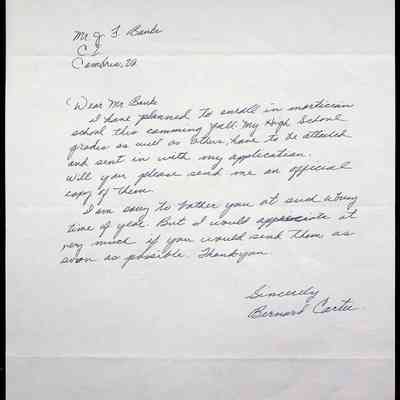 Mr. J F. Banks
C I
Cambria, Va
Dear Mr Banks
I have planned to enroll in mortician
school this comming fall. My High School
grades as well as others, have to be attested
and sent in with my application.
Will you please send me an official
copy of them.
I am sorry to bother you at such a busy
time of year. But I would appreciate it
very much if you would send them as
soon as possible. Thank you.
Sincerely
Bernard Carter